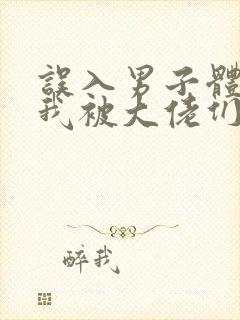 誤入男子體
我被大佬们
醉我